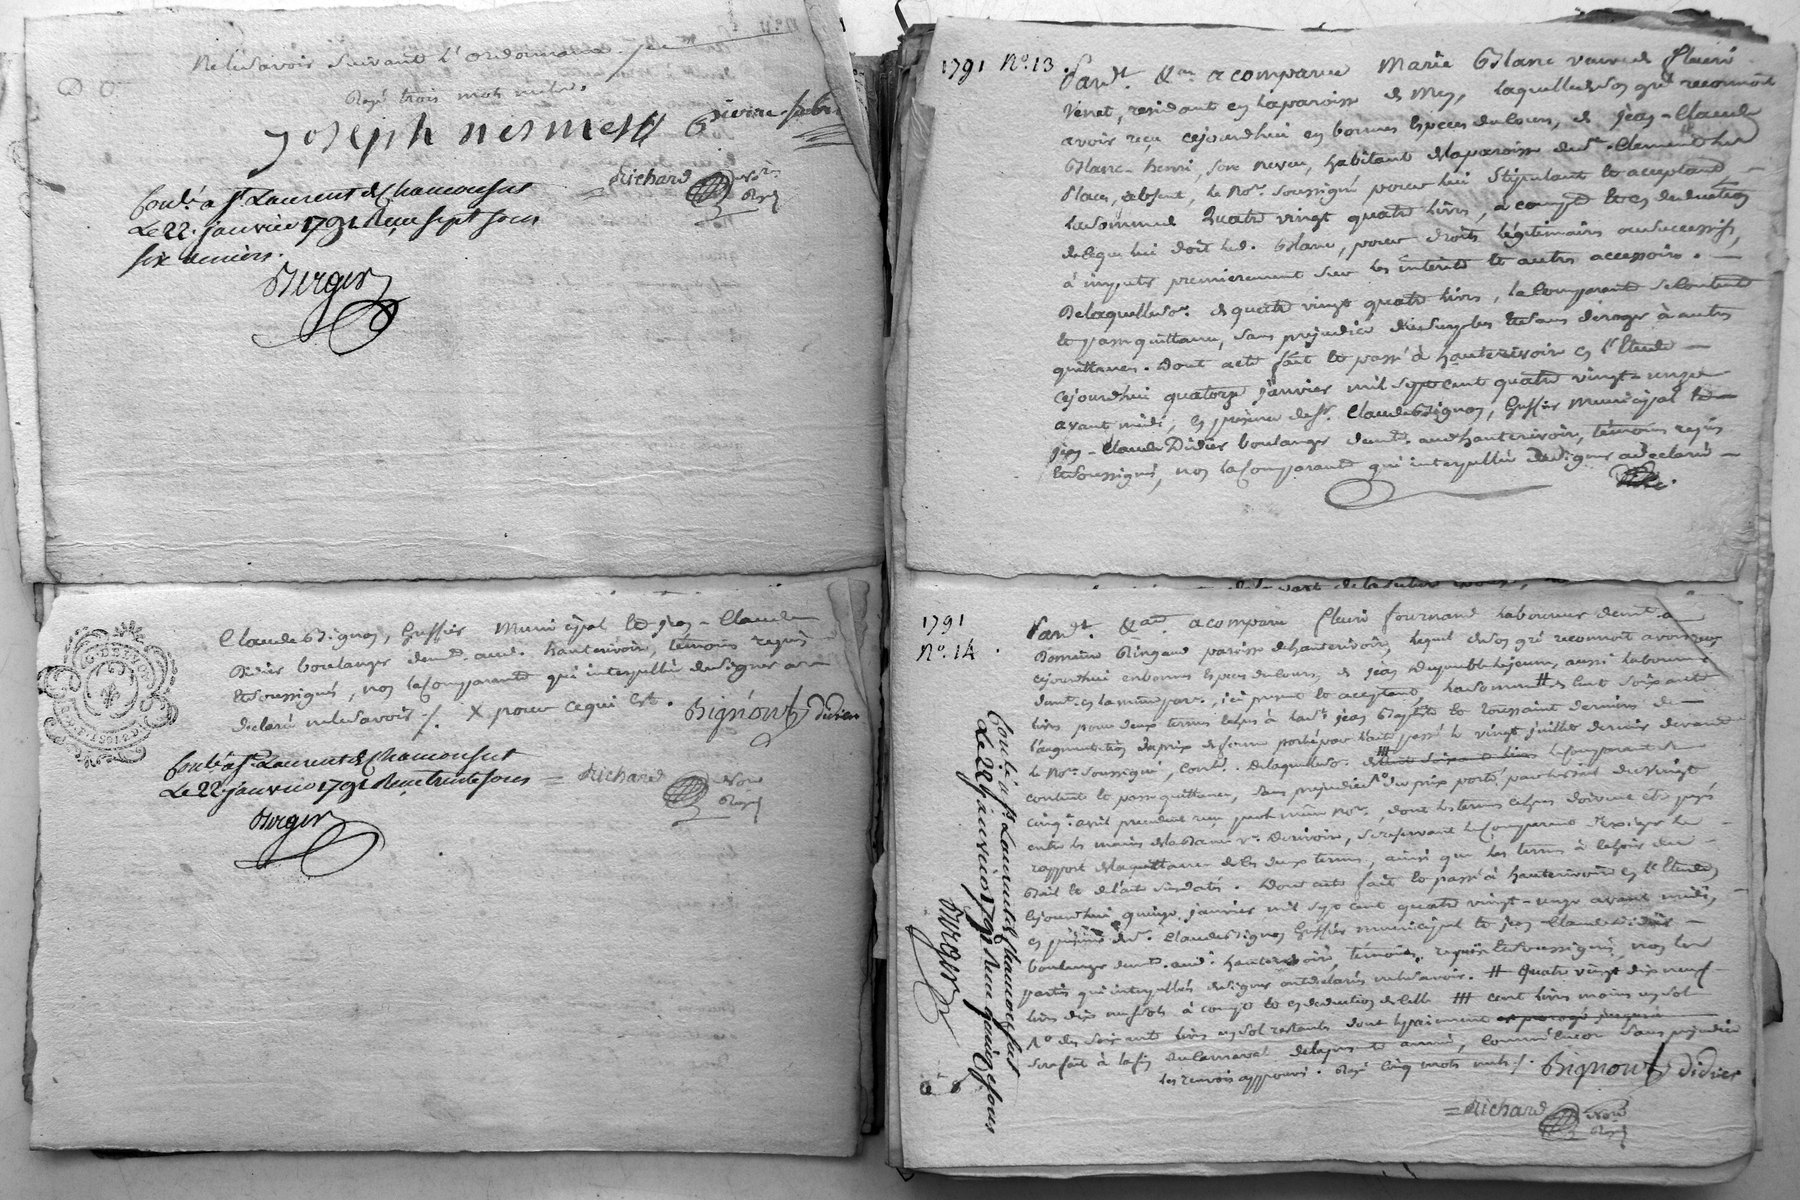 Ne le savoir suivant l'ordonnance.
Rayé trois mots nuls.
joseph nesmes
Richard Nore Royl
Con.lé à St. Laurent de Chamousset
Le 22. janvier 1791 Reçu sept sous
six deniers.
Berger
Claude Bignon, Greffier Municipal et jean-Claude
Didier boulanger demt. aud. hauterivoire, témoins requis
et soussignés, non la Comparante qui interpellée de signer a
déclaré ne le savoir ./. X pour ce qui est. Bignon didier
Con.lé à St. Laurent de Chamousset
Le 22 janvier 1791 Reçu trente sous = Richard Nore Royl
Berger
1791 No. 13.
Pardt. &a. a comparue Marie Blanc veuve de fleuri
Venet, residant en la paroisse de Mys, laquelle de son gré reconnoit
avoir reçu cejourdhui en bonnes Especes du Cours, de jean-Claude
Blanc-henri, son neveu, habitant de la paroisse de St.-Clement les
Places, absent, le Nore. Soussigné pour lui Stipulant et acceptant
la somme de Quatre vingt quatre livres, à compte et en deduction
de ce que lui doit led. Blanc, pour droits légitimaires ou successifs,
à imputer premierement sur les intérêts et autres accessoires. —
De laquelle so. de quatre vingt quatre livres, la Comparante se contente
et passe quittance, sans prejudice du surplus et sans deroger à autres
quittances. Dont acte fait et passé à hauterivoire en l'Etude —
cejourdhui quatorze janvier mil sept cent quatre vingt-onze
avant midi, en présence de Sr. Claude Bignon, Greffier Municipal et
jean-Claude Didier boulanger demt. aud. hauterivoire, témoins requis
et soussignés, non la Comparante qui interpellée de signer a déclaré —
1791
No. 14.
Pardt. &a. a comparu fleuri fournand laboureur demt. à
paroisse de hauterivoire, lequel de son gré reconnoit avoir reçu
cejourdhui en bonnes Especes du Cours, de jean Dupuble le jeune, aussi laboureur
demt. en la même par., ici présent et acceptant, la somme # de Cent soixante
livres pour deux termes echus à la St. jean Baptiste et toussaint derniers de
l'augmentation du prix de ferme porté par l'acte passé le vingt juillet dernier devant
le Nore. soussigné, Conlé. De laquelle so. le Comparant se
contente et passe quittance, sans prejudice du prix porté par le bail du vingt
cinq avril precedent reçu par le même Nore., dont les termes echus doivent être payés
entre les mains de la Dame
rapport de la quittance de les deux termes, ainsi que les termes à echoir du
Bail et de l'acte susdatés. Dont acte fait et passé à hauterivoire en l'Etude
cejourdhui quinze janvier mil sept cent quatre vingt-onze avant midi,
en présence de Sr. Claude Bignon Greffier municipal et jean-Claude Didier
boulanger demt. aud. hauterivoire, témoins requis et soussignés, non les
parties qui interpellées de signer ont déclaré ne le savoir. # Quatre vingt dix neuf
livres dix neuf sols à compte et en deduction de celle ### cent livres moins un sol
des soixante livres un sol restants dont le payement
sera fait à la fin du Carnaval de la présente année, sans prejudice
les renvois approuvés. Rayé Cinq mots nuls ./. Bignon didier
= Richard Nore Royl
Conlé à St. Laurent de Chamousset
Le 22 janvier 1791 Reçu quinze sous
Berger